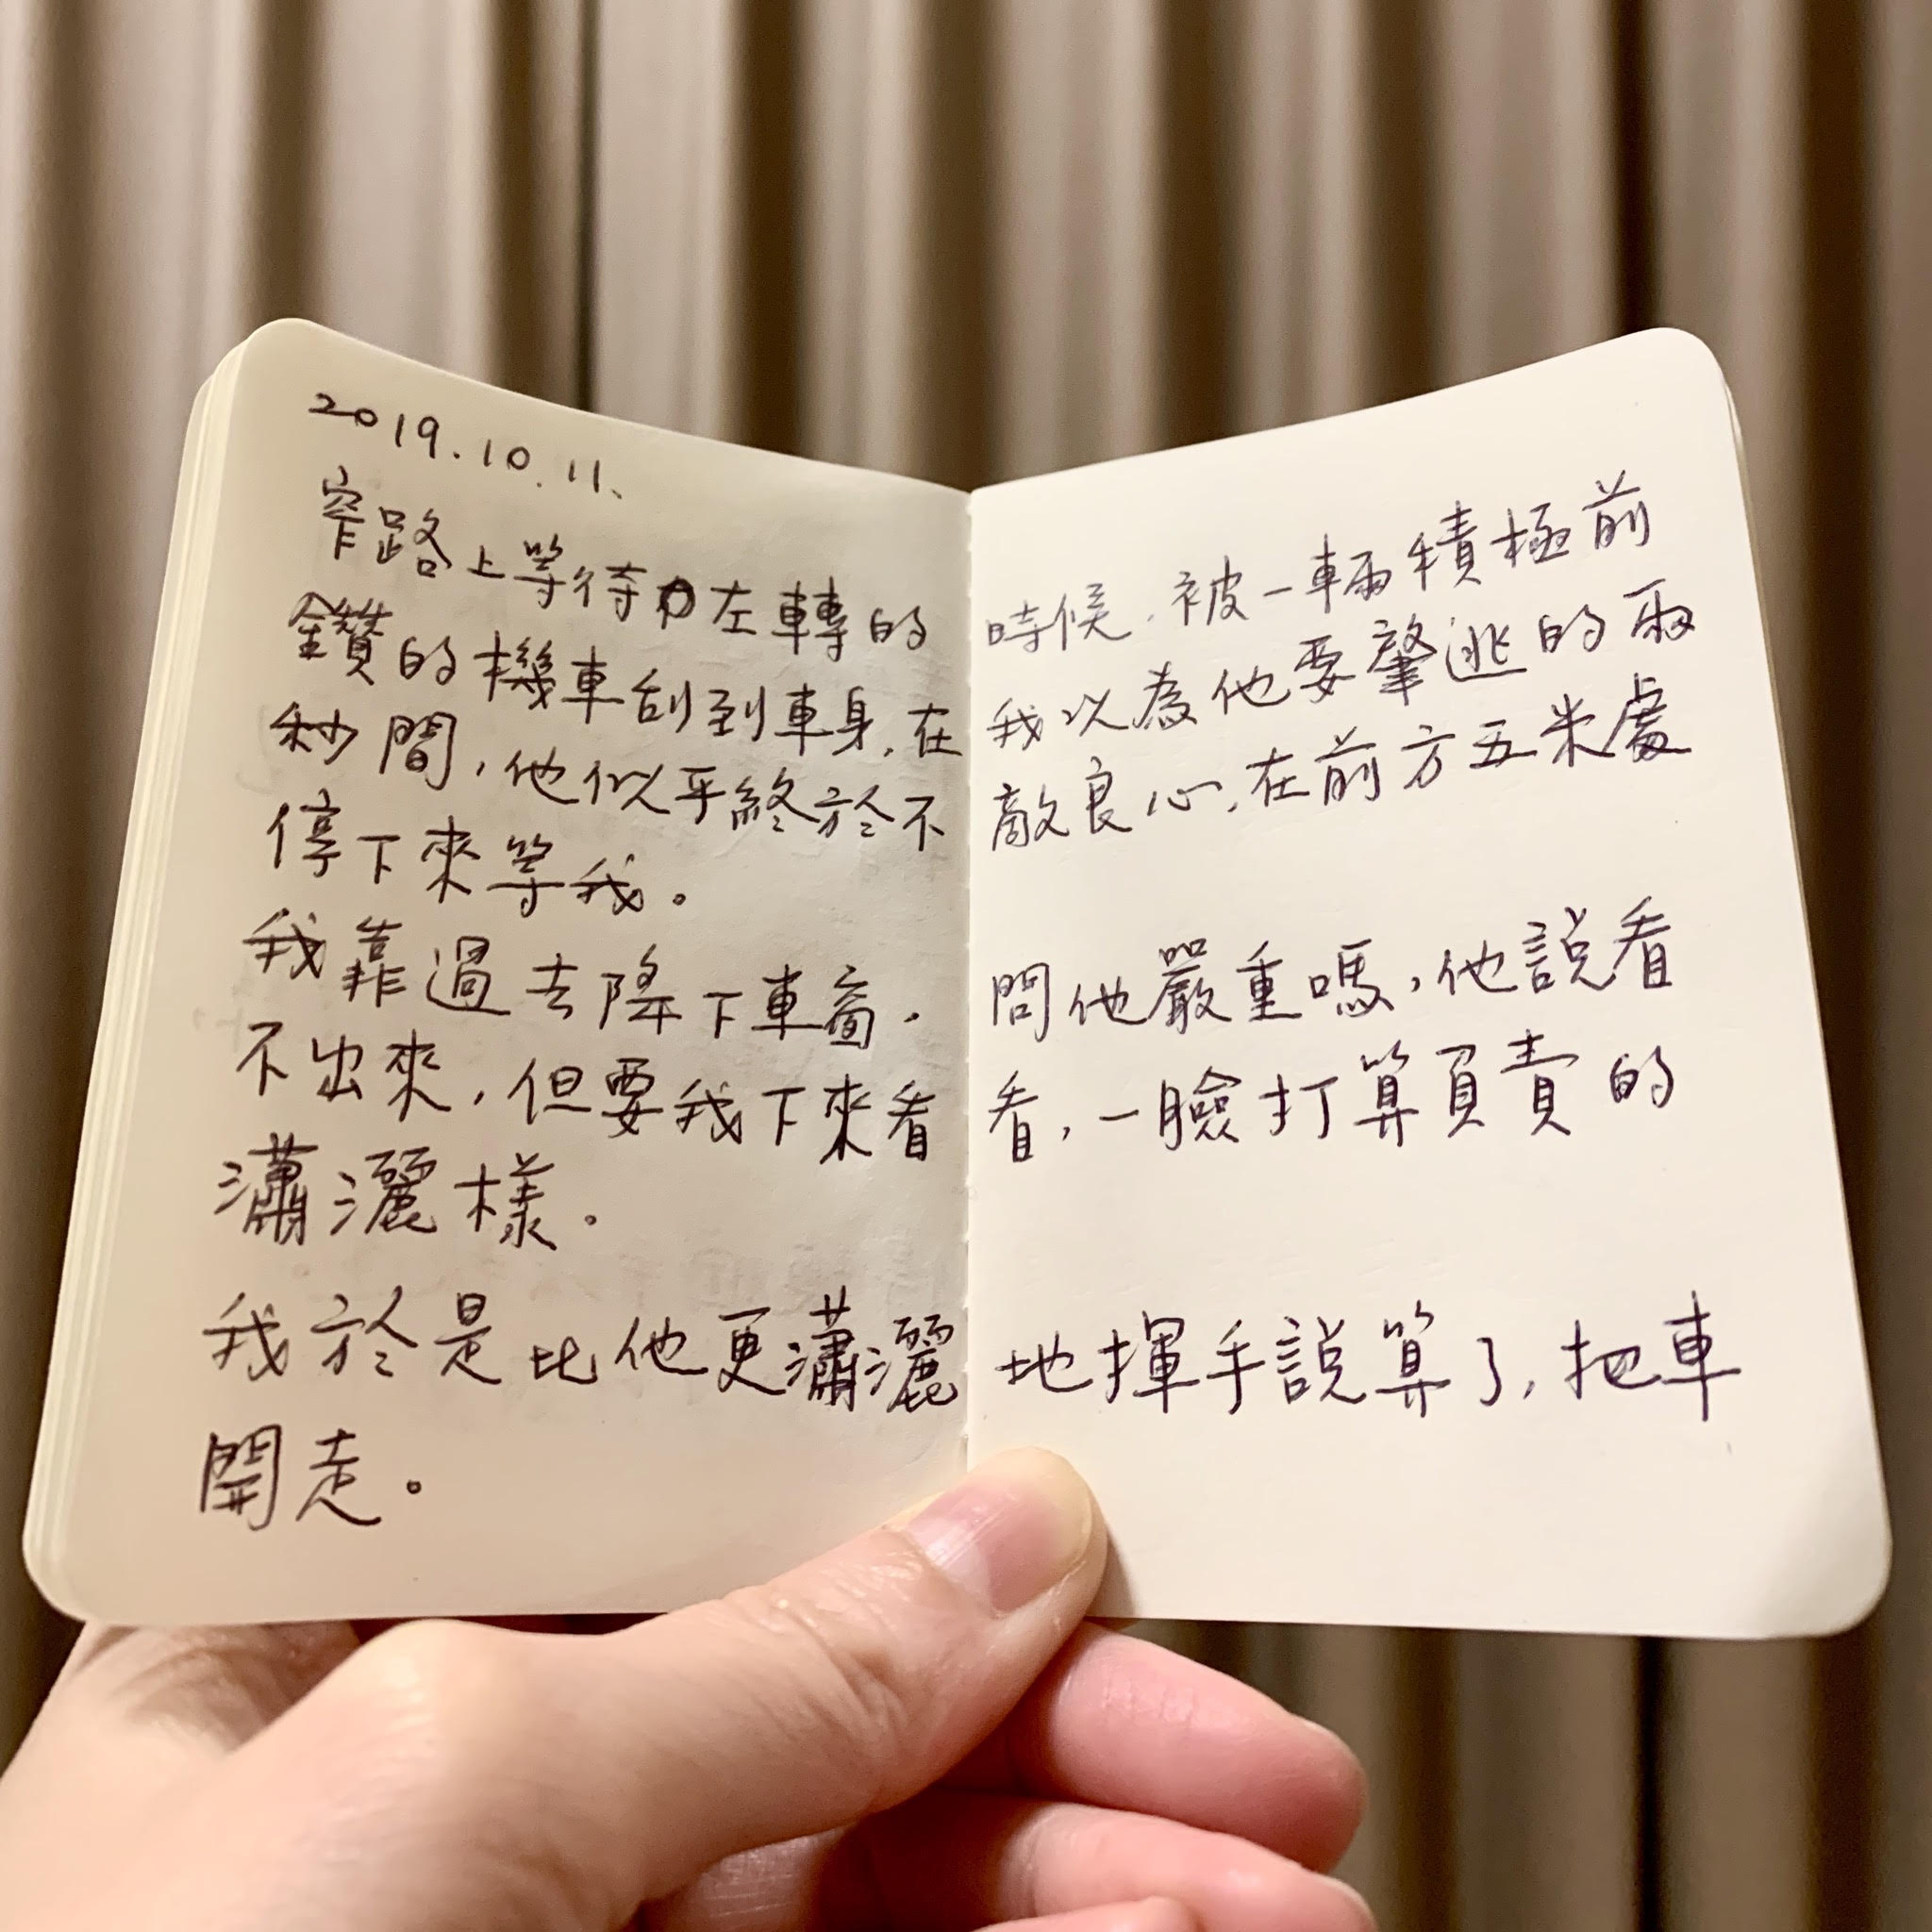 2019.10.11.
窄路上等待左轉的時候,被一輛積極前
鑽的機車刮到車身,在我以為他要肇逃的兩
秒間,他似乎終於不敵良心,在前方五米處
停下來等我。
我靠過去降下車窗,問他嚴重嗎,他說看
不出來,但要我下來看看,一臉打算負責的
瀟灑樣。
我於是比他更瀟灑地揮手說算了,把車
開走。